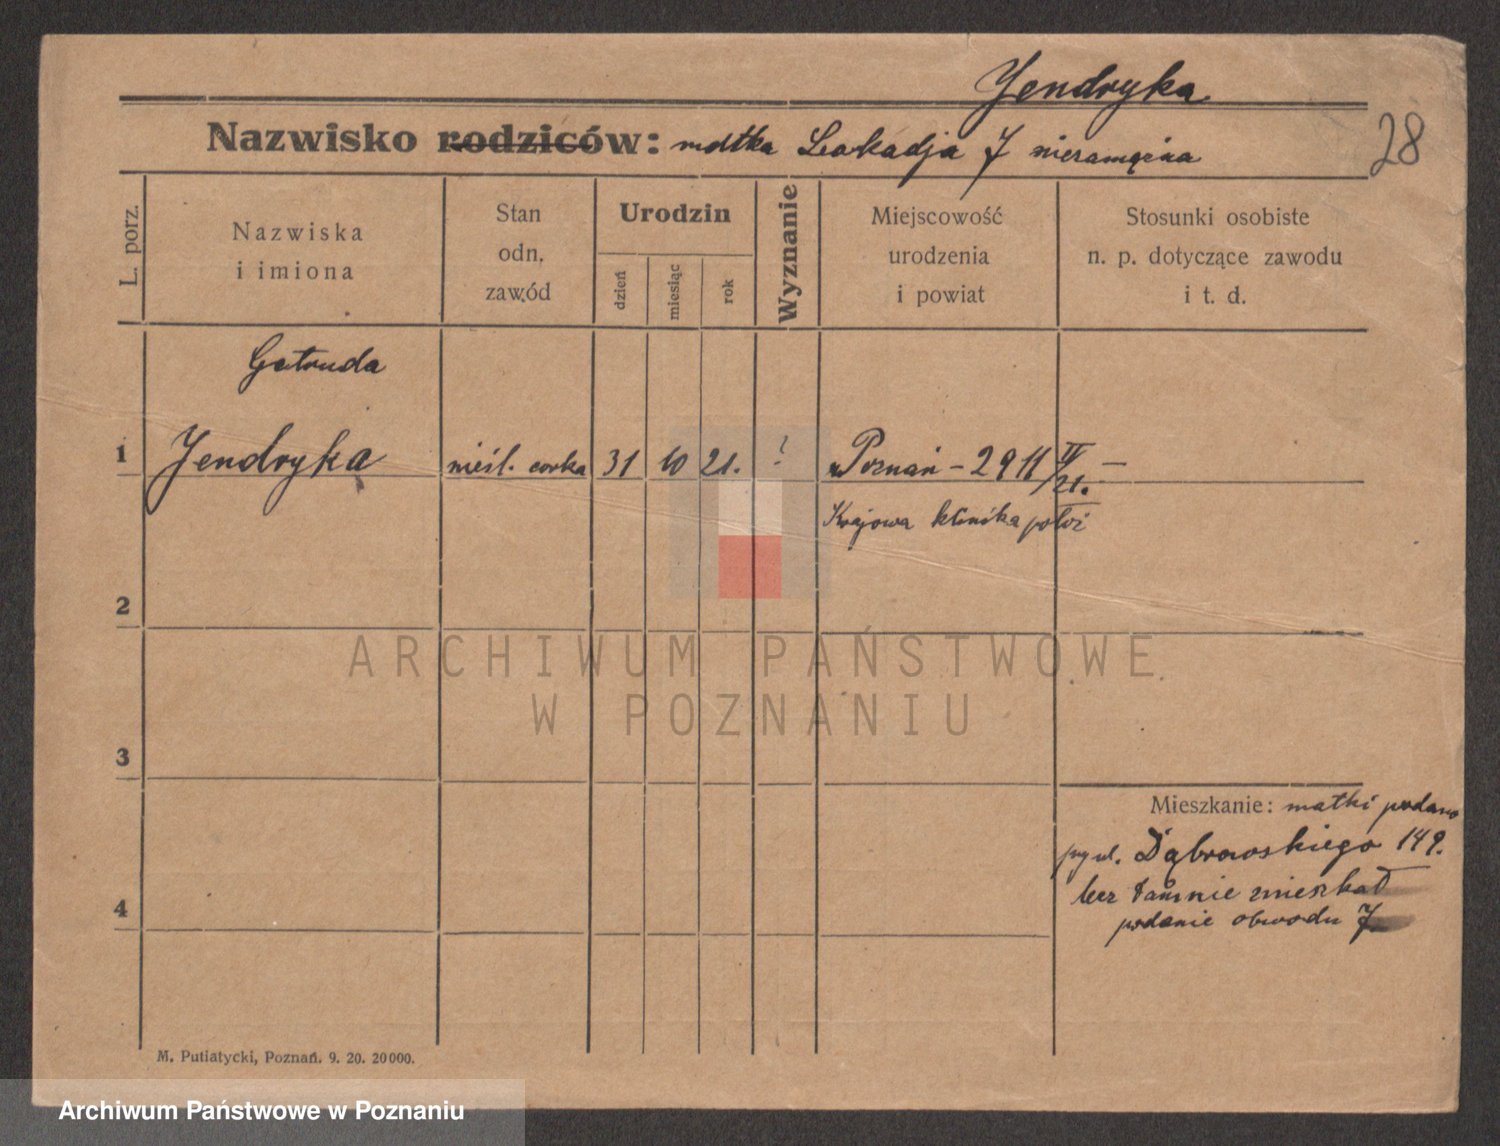 Jendryka
Nazwisko rodziców: matka Leokadja J niezamężna
28
L. porz.
Nazwiska
i imiona
Stan
odn.
zawód
Urodzin
dzień
miesiąc
rok
Wyznanie
Miejscowość
urodzenia
i powiat
Stosunki osobiste
n. p. dotyczące zawodu
i t. d.
Getruda
1 Jendryka nieśl. corka 31 10 21. ? Poznań - 2911/IV 21. —
Krajowa klinika położ
2
3
4
Mieszkanie: matki podano
przy ul. Dąbrowskiego 149.
lecz tam nie mieszkał
podanie obwodu 7
M. Putiatycki, Poznań. 9. 20. 20000.
ARCHIWUM PAŃSTWOWE
W POZNANIU
Archiwum Państwowe w Poznaniu